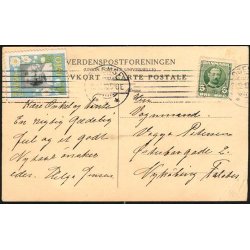 VERDENSPOSTFORENINGEN
BREVKORT CARTE POSTALE
5
Kære Onkel og Tante
En rigtig Glædelig
Jul og et godt
Nytaar ønsker
eder Helga Jensen
Hrn.
Vognmand
Petersen
Østergade 2
Nykøbing Falster